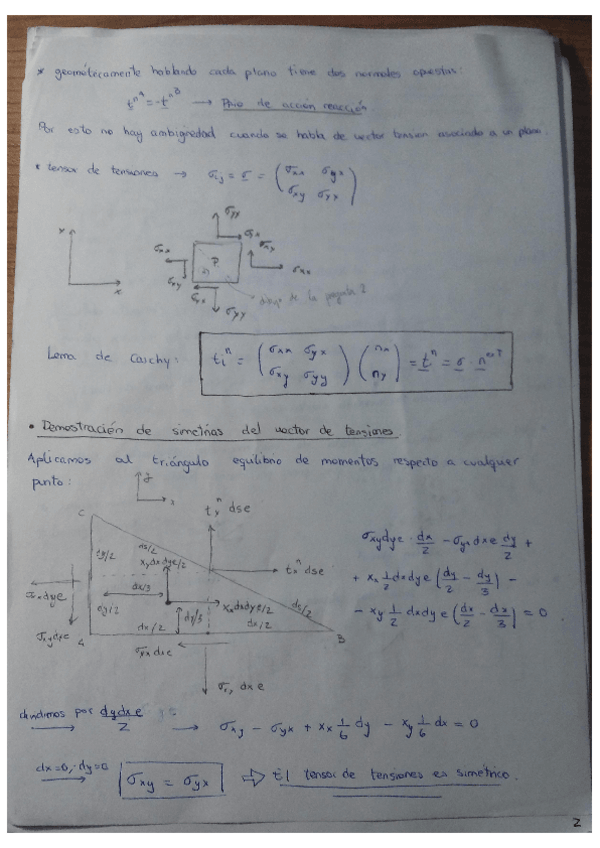 * geométricamente hablando cada plano tiene dos normales opuestas:
t^{nA} = -t^{nB} → Ppio de acción reacción.
Por esto no hay ambigüedad cuando se habla de vector tension asociado a un plano.
* tensor de tensiones → σij = σ = (σxx σyx
σxy σyx)
σyy
σyx
y
σxx
P
σxy
σxx
σxy
x
σyx
σyy
dibujo de la pregunta 2
Lema de Cauchy: ti^n = (σxx σyx
σxy σyy) (nx
ny) = t^n = σ · n
• Demostración de simetrias del vector de tensiones
Aplicamos al triángulo equilibrio de momentos respecto a cualquer
punto:
y
x
C
dse
dy/2
ds/2
xy dxdye/2
tx^n dse
σxx dye
dx/3
dy/2
dy/3
xx dxdye/2
ds/2
A
dx/2
dx/2
B
σyx dxe
dxe
σxy dye · dx/2 - σyx dxe dy/2 +
+ xx 1/2 dxdye (dy/2 - dy/3) -
- xy 1/2 dxdye (dx/2 - dx/3) = 0
dividimos por dydxe/2 → σxy - σyx + xx 1/6 dy - xy 1/6 dx = 0
dx=0, dy=0 → σxy = σyx ⇒ El tensor de tensiones es simétrico.
2